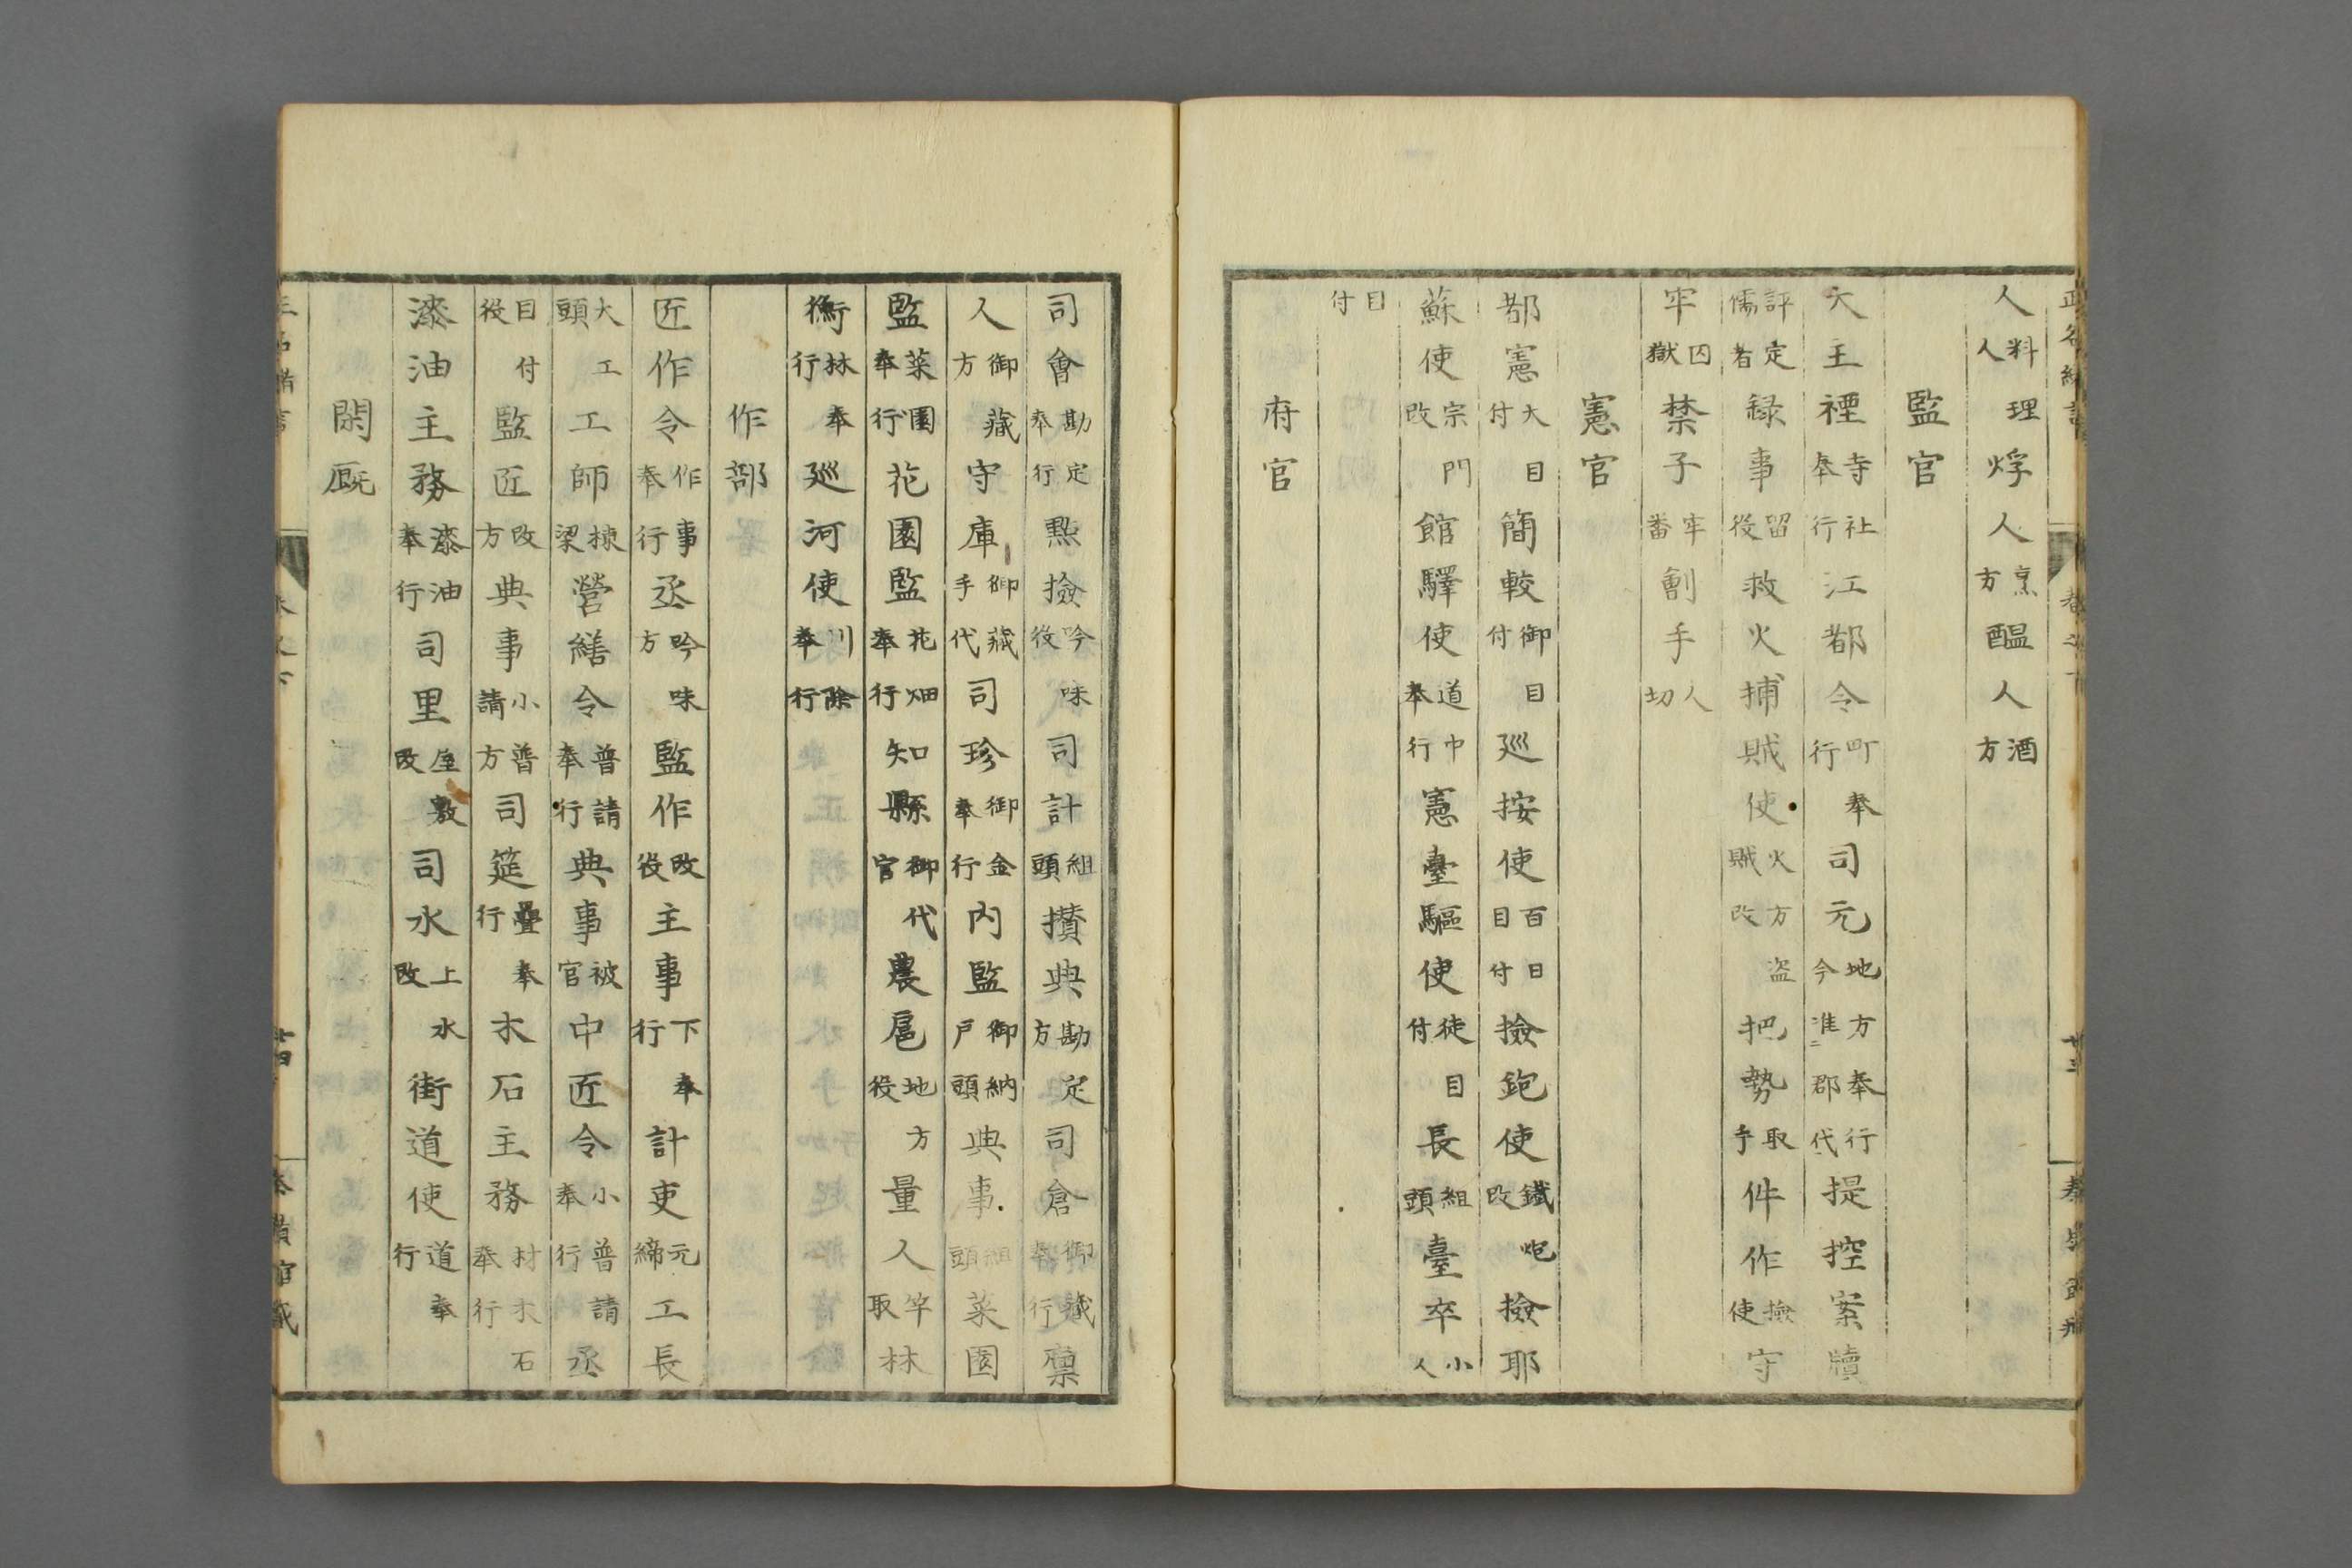 人料理人烰人烹方醞人酒方
監官
大主禋寺社奉行江都令町奉行司元地方奉行今准ニ郡代提控案牘
評定儒者録事留役救火捕賊使火方盗賊改把勢取手仵作撿使守
牢囚獄禁子牢番劊手人切
憲官
都憲大目付簡較御目付巡按使百日目付撿鉋使鐵炮改撿耶
蘇使宗門改館驛使道中奉行憲臺驅使徒目付長組頭臺卒小人
目付
府官
司會勘定奉行㸃撿吟味役司計組頭攅典勘定方司倉御藏奉行廩
人御藏方守庫御藏手代司珍御金奉行内監御納戸頭典事組頭菜園
監菜園奉行花園監花畑奉行知縣御代官農扈地方役量人竿取林
衡林奉行巡河使川除奉行
作部
匠作令作事奉行丞吟味方監作改役主事下奉行計吏元締工長
大工頭工師棟梁營繕令普請奉行典事被官中匠令小普請奉行丞
目付役監匠改方典事小普請方司筵疊奉行木石主務材木石奉行
漆油主務漆油奉行司里屋敷改司水上水改街道使道奉行
閑厩